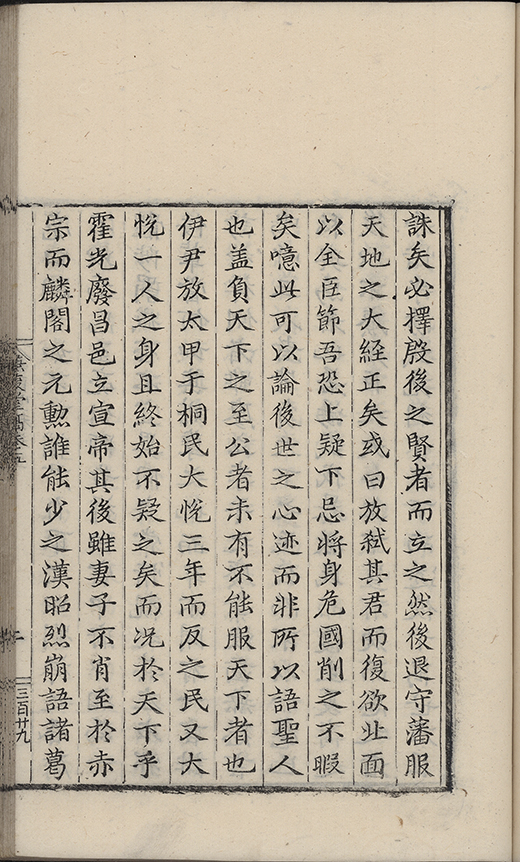 誅矣必擇殷後之賢者而立之然後退守藩服
天地之大經正矣或曰放弑其君而復欲北面
以全臣節吾恐上疑下忌將身危國削之不暇
矣噫此可以論後世之心迹而非所以語聖人
也盖負天下之至公者未有不能服天下者也
伊尹放太甲于桐民大悅三年而反之民又大
悅一人之身且終始不疑之矣而况於天下乎
霍光廢昌邑立宣帝其後雖妻子不肖至於赤
宗而麟閣之元勲誰能少之漢昭烈崩語諸葛
三百廿九